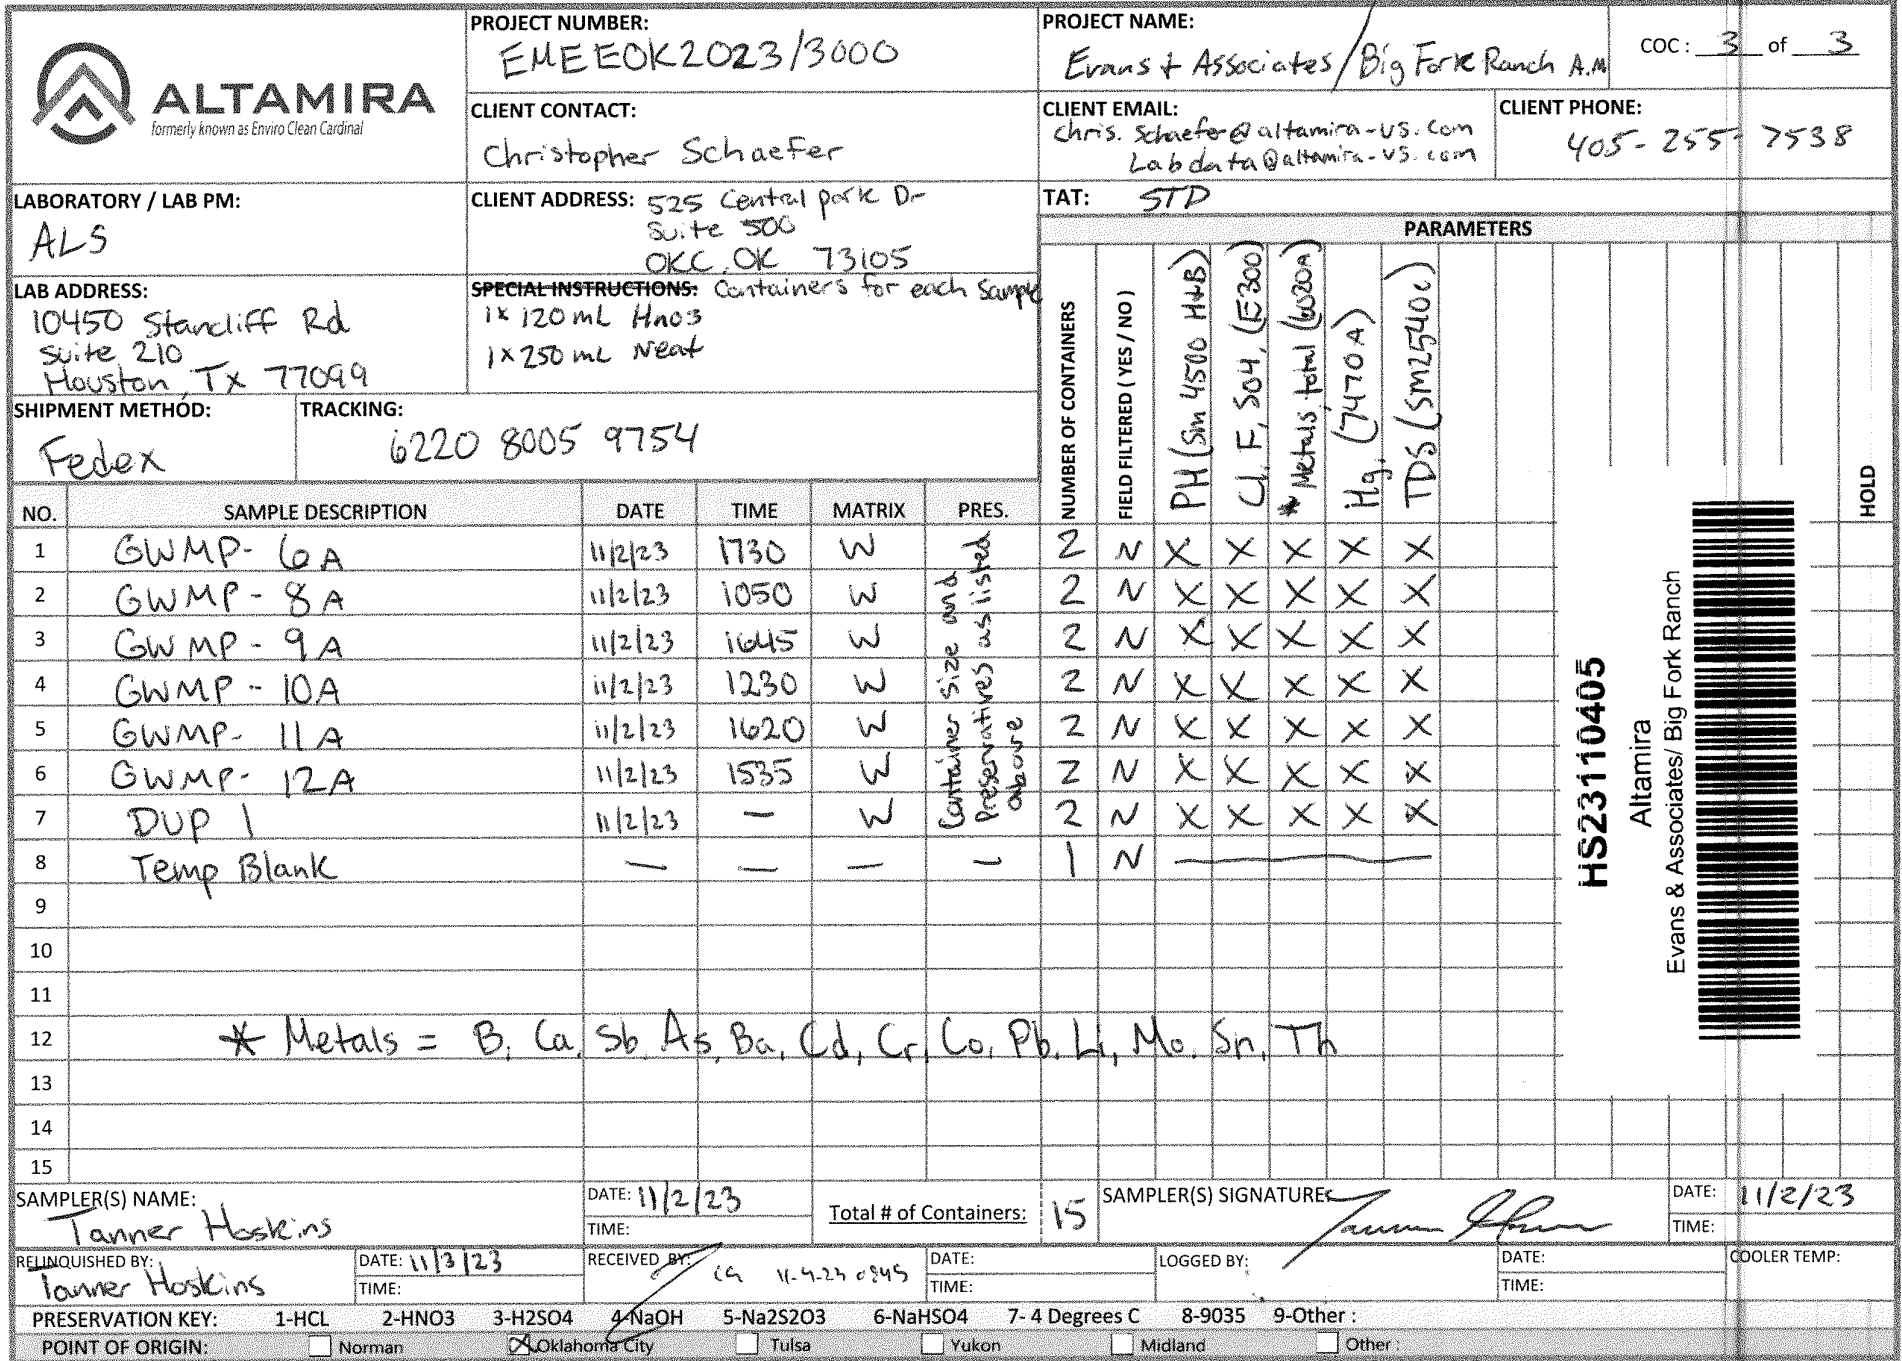 ALTAMIRA
formerly known as Enviro Clean Cardinal
PROJECT NUMBER:
EMEEOK2023/3000
PROJECT NAME:
Evans + Associates/Big Fork Ranch A.M
COC: 3 of 3
CLIENT CONTACT:
Christopher Schaefer
CLIENT EMAIL:
chris.schaefer@altamira-us.com
Labdata@altamira-us.com
CLIENT PHONE:
405-255-7538
LABORATORY / LAB PM:
ALS
CLIENT ADDRESS: 525 Central park Dr
Suite 500
OKC, OK 73105
TAT: STD
PARAMETERS
LAB ADDRESS:
10450 Stancliff Rd
Suite 210
Houston, Tx 77099
SPECIAL INSTRUCTIONS: Containers for each Sample
1x 120 mL Hno3
1x 250 mL Neat
SHIPMENT METHOD:
Fedex
TRACKING:
6220 8005 9754
NUMBER OF CONTAINERS
FIELD FILTERED ( YES / NO )
PH (Sm 4500 H+B)
Cl, F, SO4, (E300)
* Metals total (6020A)
Hg, (7470A)
TDS (SM2540c)
HOLD
NO. SAMPLE DESCRIPTION DATE TIME MATRIX PRES.
1 GWMP-6A 11/2/23 1730 W 2 N X X X X X
2 GWMP-8A 11/2/23 1050 W 2 N X X X X X
3 GWMP-9A 11/2/23 1645 W 2 N X X X X X
4 GWMP-10A 11/2/23 1230 W 2 N X X X X X
5 GWMP-11A 11/2/23 1620 W 2 N X X X X X
6 GWMP-12A 11/2/23 1535 W 2 N X X X X X
7 DUP 1 11/2/23 — W 2 N X X X X X
8 Temp Blank — — — — 1 N —
Container size and
Preservatives as listed
above
9
10
11
12 * Metals = B, Ca, Sb, As, Ba, Cd, Cr, Co, Pb, Li, Mo, Sn, Th
13
14
15
HS23110405
Altamira
Evans & Associates/ Big Fork Ranch
SAMPLER(S) NAME:
Tanner Hoskins
DATE: 11/2/23
TIME:
Total # of Containers: 15
SAMPLER(S) SIGNATURE:
DATE: 11/2/23
TIME:
RELINQUISHED BY:
Tanner Hoskins
DATE: 11/3/23
TIME:
RECEIVED BY:
11-4-23 0845
DATE:
TIME:
LOGGED BY:
DATE:
TIME:
COOLER TEMP:
PRESERVATION KEY: 1-HCL 2-HNO3 3-H2SO4 4-NaOH 5-Na2S2O3 6-NaHSO4 7- 4 Degrees C 8-9035 9-Other :
POINT OF ORIGIN: Norman X Oklahoma City Tulsa Yukon Midland Other :